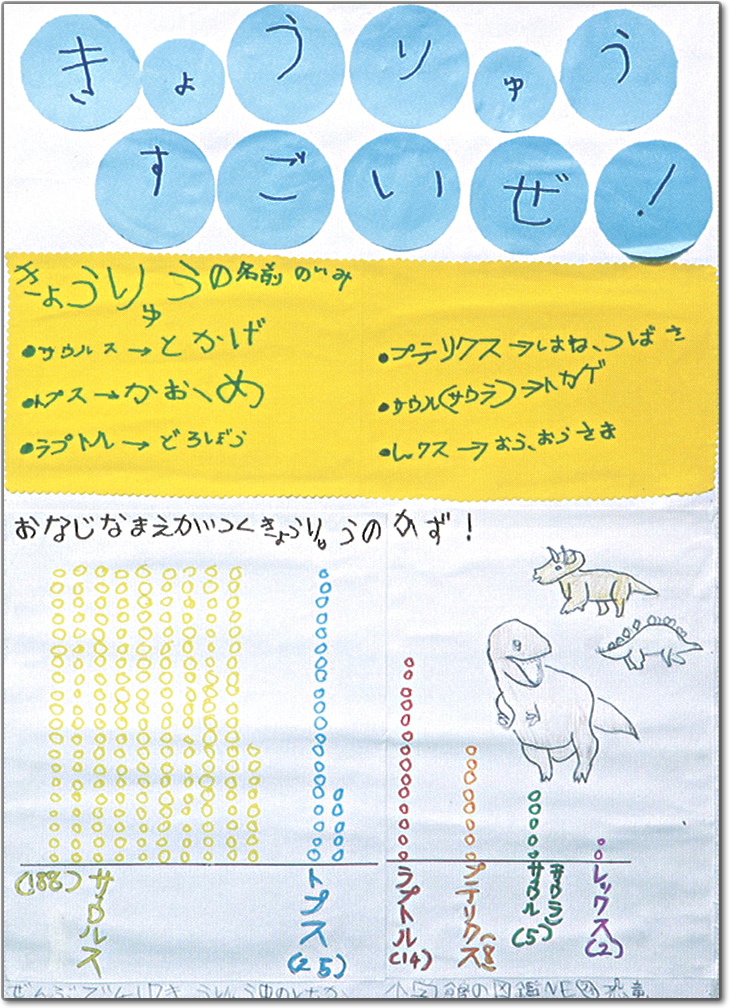 きょうりゅう
すごいぜ!
きょうりゅうの名前のいみ
●サウルス→とかげ
●トプス→かお、め
●ラプトル→どろぼう
●プテリクス→はね、つばさ
●サウル(サウラ)→トカゲ
●レクス→おう、おうさま
おなじなまえがつくきょうりゅうのかず!
サウルス(188)
トプス(25)
ラプトル(14)
プテリクス(8)
サウル(サウラ)(5)
レックス(2)
小学館の図鑑NEO恐竜